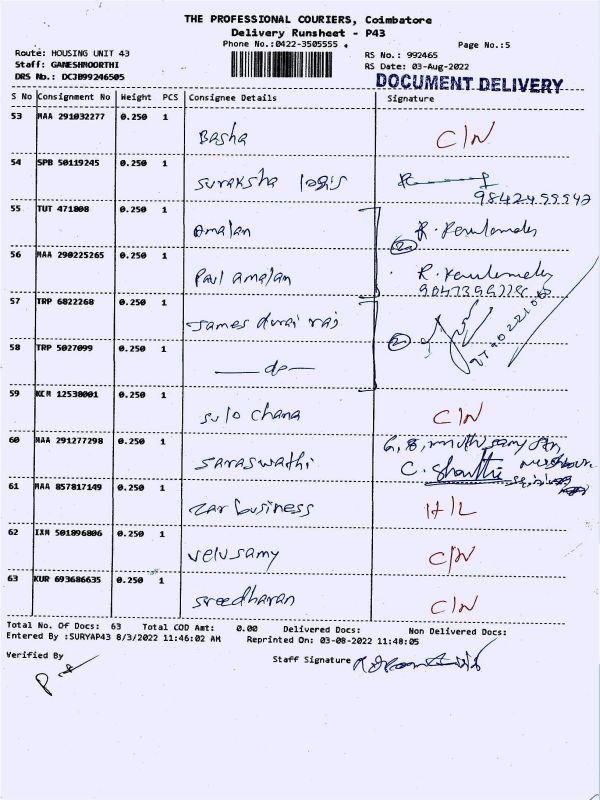 THE PROFESSIONAL COURIERS, Coimbatore
Delivery Runsheet - P43
Phone No.:0422-3505555
Page No.:5
Route: HOUSING UNIT 43
RS No.: 992465
Staff: GANESHMOORTHI
RS Date: 03-Aug-2022
DRS No.: DCJB99246505
DOCUMENT DELIVERY
S No Consignment No Weight PCS Consignee Details Signature
53 MAA 291032277 0.250 1
Basha C/N
54 SPB 50119245 0.250 1
suraksha logis
55 TUT 471808 0.250 1
Amalan
56 MAA 290225265 0.250 1
Paul amalan
57 TRP 6822268 0.250 1
James durai raj
58 TRP 5027099 0.250 1
do
59 KCM 12538001 0.250 1
sulo chana C/N
60 MAA 291277298 0.250 1
saraswathi
61 MAA 857817149 0.250 1
zar business H/L
62 IXM 501896806 0.250 1
velusamy C/N
63 KUR 693686635 0.250 1
sreedharan C/N
Total No. Of Docs: 63 Total COD Amt: 0.00 Delivered Docs: Non Delivered Docs:
Entered By :SURYAP43 8/3/2022 11:46:02 AM Reprinted On: 03-08-2022 11:48:05
Verified By
Staff Signature